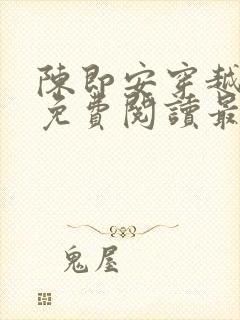 陳即安穿越
免費閱讀最
鬼屋